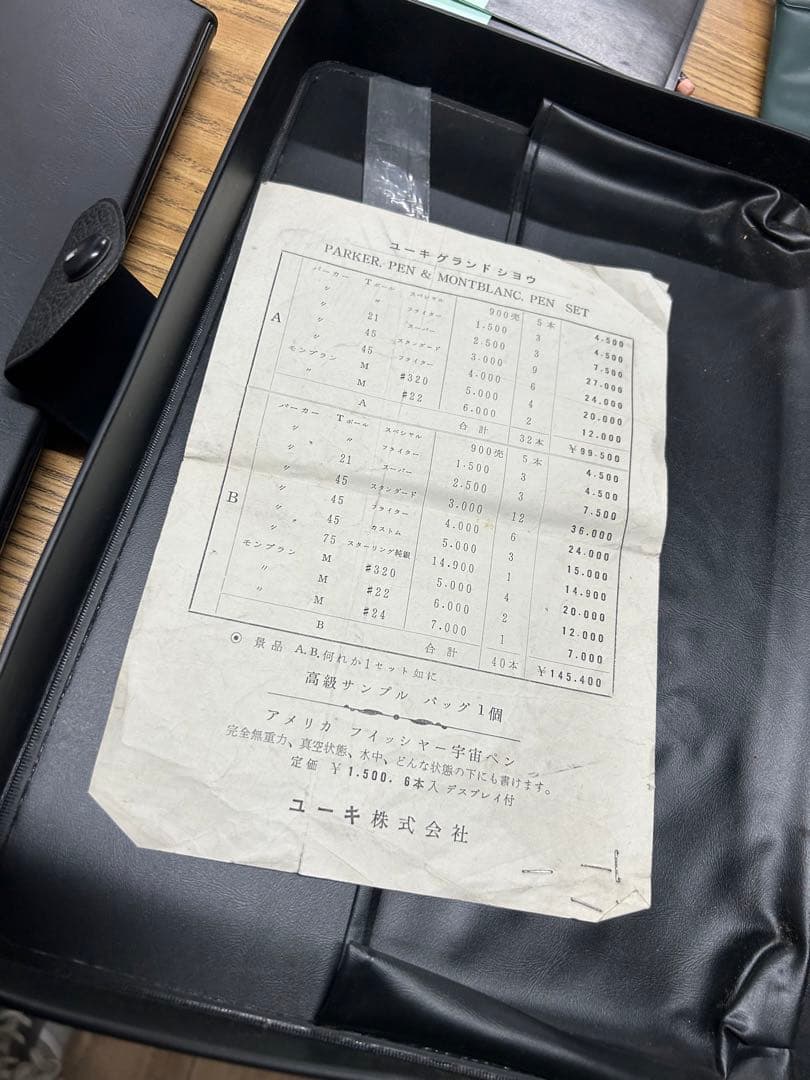 ユーキグランドショウ
PARKER. PEN & MONTBLANC. PEN SET
A
パーカー Tボール スペシャル 900売 5本 4.500
〃 〃 フライター 1.500 3 4.500
〃 21 スーパー 2.500 3 7.500
〃 45 スタンダード 3.000 9 27.000
〃 45 フライター 4.000 6 24.000
モンブラン M #320 5.000 4 20.000
〃 M #22 6.000 2 12.000
A 合計 32本 ¥99.500
B
パーカー Tボール スペシャル 900売 5本 4.500
〃 〃 フライター 1.500 3 4.500
〃 21 スーパー 2.500 3 7.500
〃 45 スタンダード 3.000 12 36.000
〃 45 フライター 4.000 6 24.000
〃 45 カストム 5.000 3 15.000
〃 75 スターリング純銀 14.900 1 14.900
モンブラン M #320 5.000 4 20.000
〃 M #22 6.000 2 12.000
〃 M #24 7.000 1 7.000
B 合計 40本 ¥145.400
◉ 景品 A.B.何れか1セット如に
高級サンプル バッグ1個
アメリカ フイッシャー宇宙ペン
完全無重力、真空状態、水中、どんな状態の下にも書けます。
定価 ¥1.500. 6本入 デスプレイ付
ユーキ株式会社